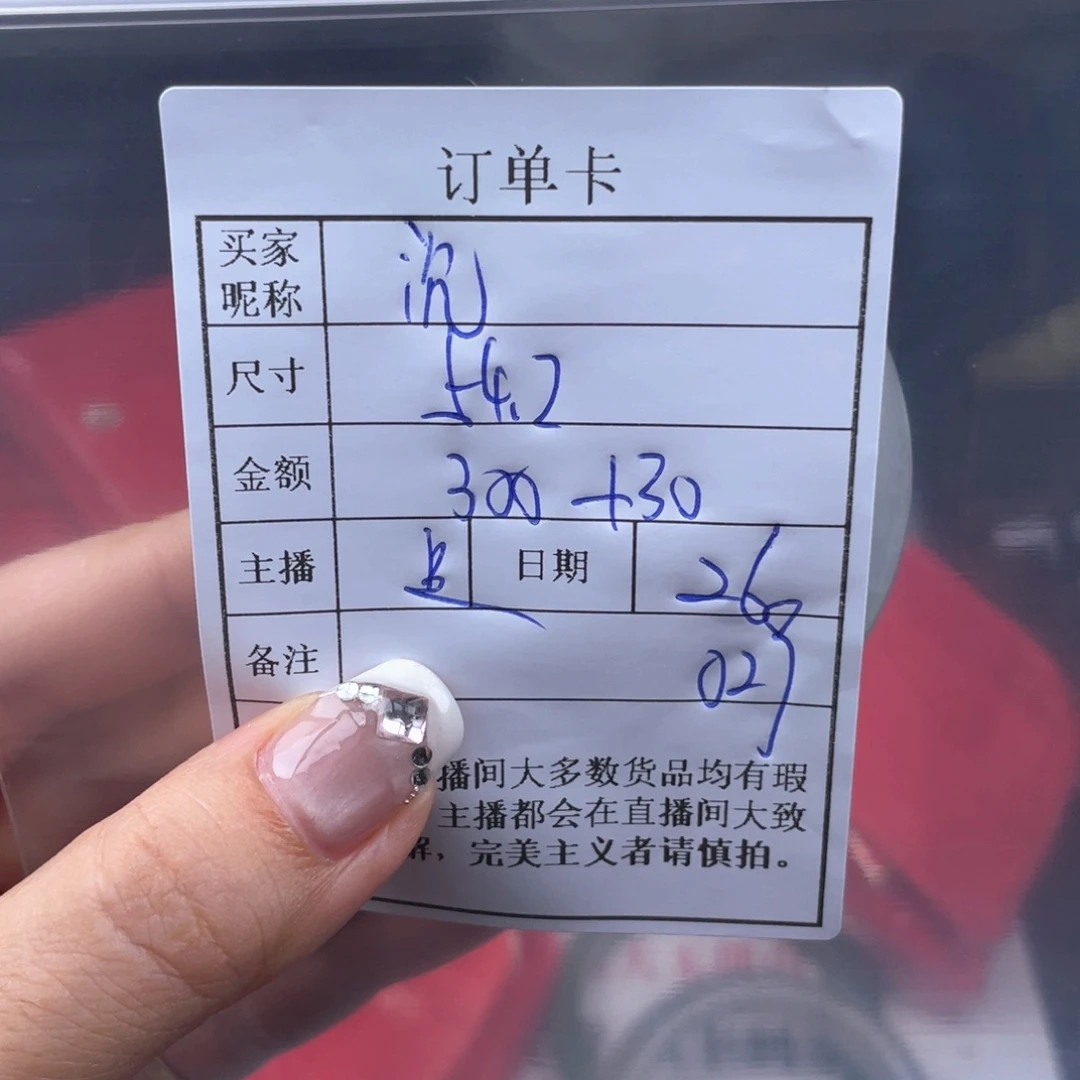 订单卡
买家昵称 沉
尺寸 54.2
金额 300 +30
主播 日期 26号
备注 027
播间大多数货品均有瑕
主播都会在直播间大致
解，完美主义者请慎拍。